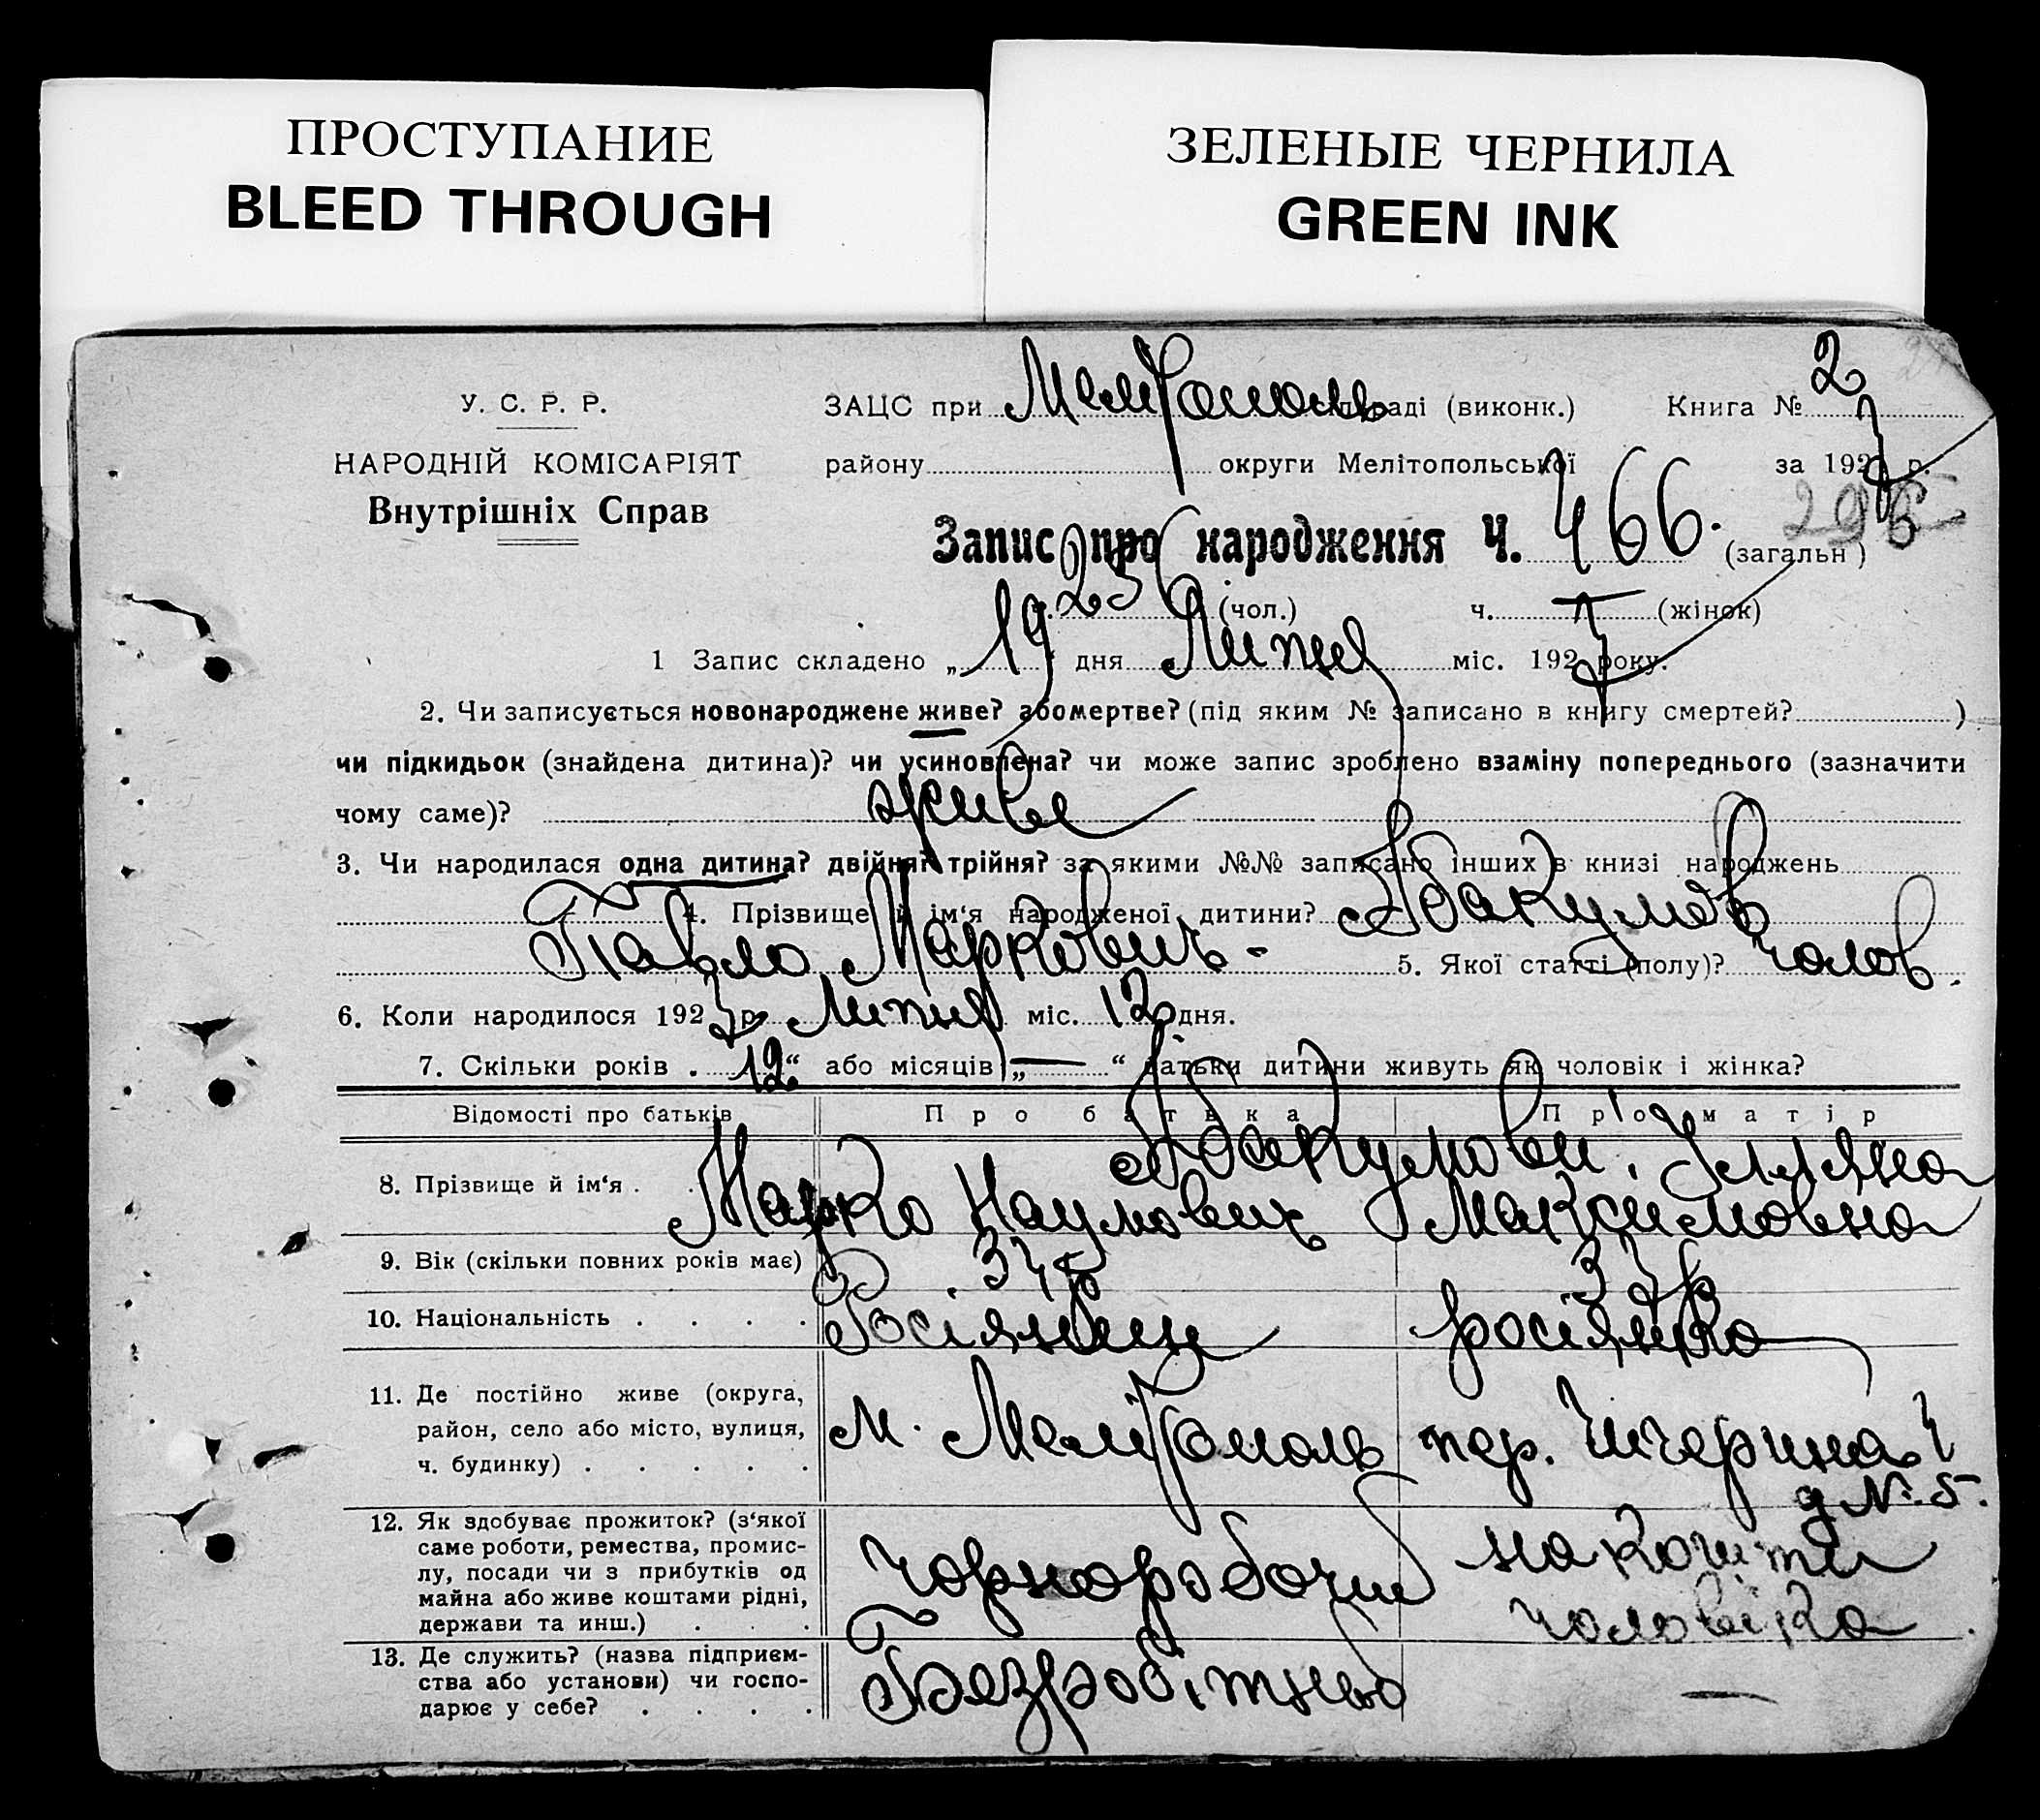 ПРОСТУПАНИЕ
BLEED THROUGH
ЗЕЛЕНЫЕ ЧЕРНИЛА
GREEN INK
У. С. Р. Р.
НАРОДНІЙ КОМІСАРІЯТ
Внутрішніх Справ
ЗАЦС при Мелітополь раді (виконк.) Книга № 2
району округи Мелітопольської за 1927 р.
Запис про народження Ч. 466. (загальн)
296
ч. 236 (чол.) ч. (жінок)
1 Запис складено „19" дня Липня міс. 1927 року.
2. Чи записується новонароджене живе? або мертве? (під яким № записано в книгу смертей? )
чи підкидьок (знайдена дитина)? чи усиновлена? чи може запис зроблено взаміну попереднього (зазначити
чому саме)? живе
3. Чи народилася одна дитина? двійня? трійня? за якими №№ записано інших в книзі народжень
4. Прізвище й ім'я народженої дитини? Абакумов
Павло Маркович - 5. Якої статті (полу)? Чолов.
6. Коли народилося 1927 р. Липня міс. 12 дня.
7. Скільки років . 12 " або місяців „—" батьки дитини живуть як чоловік і жінка?
Відомості про батьків Про батька Про матір
8. Прізвище й ім'я . Абакумови. Уляна
Марко Наумович Максимовна
9. Вік (скільки повних років має) 34 р 33 р
10. Національність . . . . Росіянин росіянка
11. Де постійно живе (округа,
район, село або місто, вулиця,
ч. будинку) . . . . . м. Мелітополь пер. Чичерина
д № 5.
12. Як здобуває прожиток? (з'якої
саме роботи, ремества, промис-
лу, посади чи з прибутків од
майна або живе коштами рідні,
держави та инш.) . . . Чорноробочий на кошти
чоловіка
13. Де служить? (назва підприєм-
ства або установи) чи госпо-
дарює у себе? . . . . Безробітный —